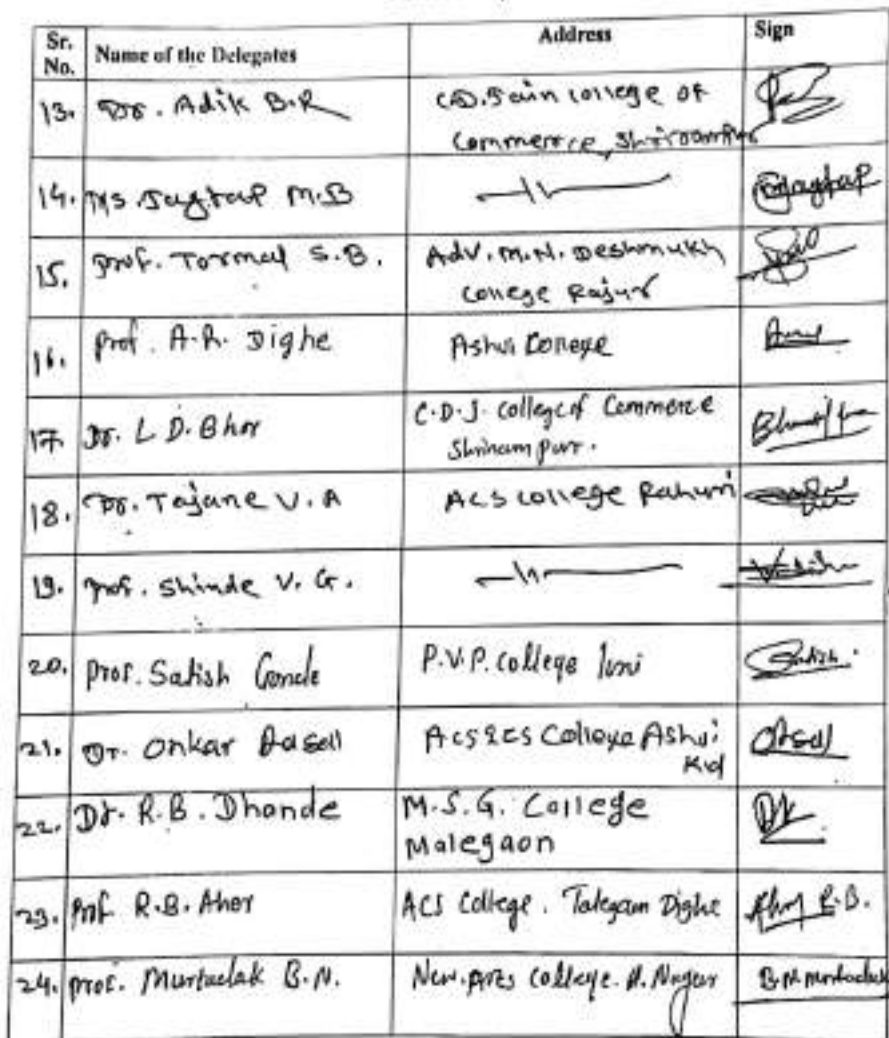 Sr. No. Name of the Delegates Address Sign
13. Dr. Adik B.R C.D. Jain College of
Commerce, Shrirampur
14. Ms. Jagtap M.B —〃— Jagtap
15. Prof. Tormal S.B. Adv. M.N. Deshmukh
College Rajur
16. Prof. A.R. Dighe Ashvi College
17. Dr. L. D. Bhor C.D.J. College of Commerce
Shrirampur.
18. Dr. Tajane V.A ACS College Rahuri
19. Prof. Shinde V. G. —〃—
20. Prof. Satish Gonde P.V.P. College Loni Satish
21. Dr. Onkar Rasal ACS & CS College Ashvi
Kd
22. Dr. R.B. Dhonde M.S.G. College
Malegaon
23. Prof. R.B. Aher ACS College. Talegaon Dighe R.B.
24. Prof. Murtadak B.N. New. Arts College. A. Nagar B.N. Murtadak